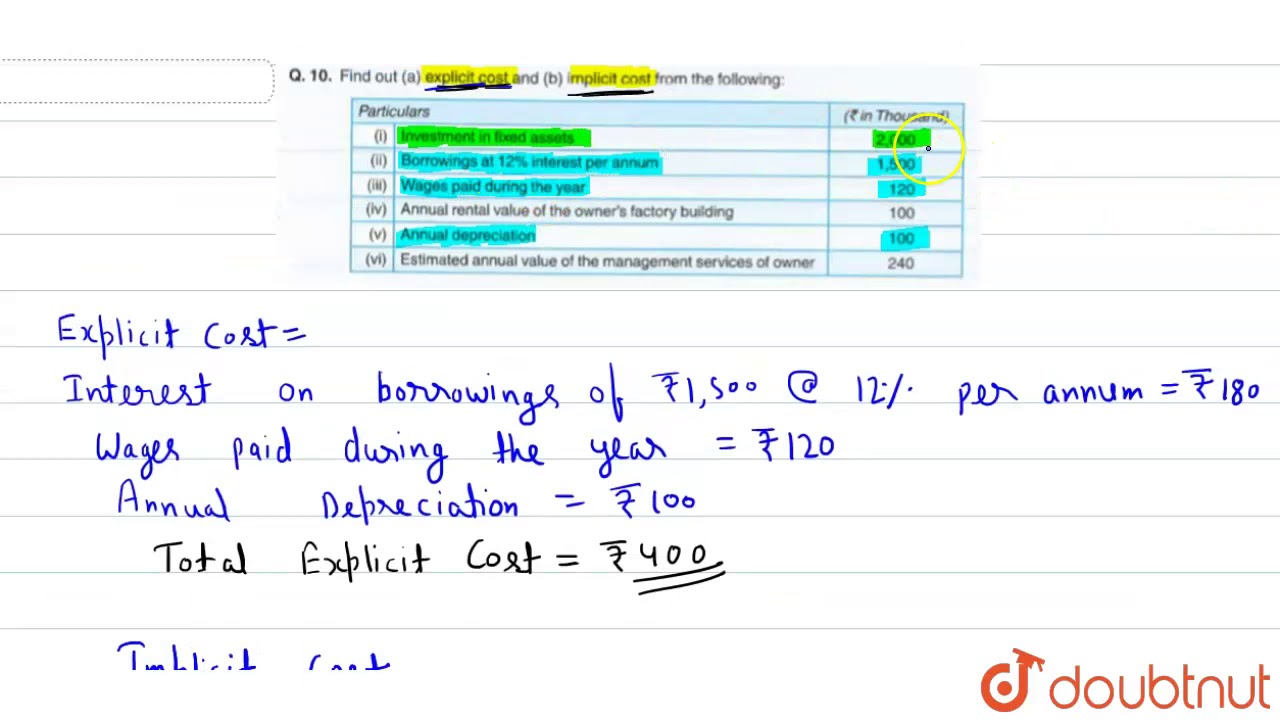 Q. 10. Find out (a) explicit cost and (b) implicit cost from the following:
Particulars (₹ in Thousand)
(i) Investment in fixed assets 2,000
(ii) Borrowings at 12% interest per annum 1,500
(iii) Wages paid during the year 120
(iv) Annual rental value of the owner's factory building 100
(v) Annual depreciation 100
(vi) Estimated annual value of the management services of owner 240
Explicit Cost =
Interest on borrowings of ₹1,500 @ 12% per annum = ₹180
Wages paid during the year = ₹120
Annual Depreciation = ₹100
Total Explicit Cost = ₹400
Implicit Cost
doubtnut